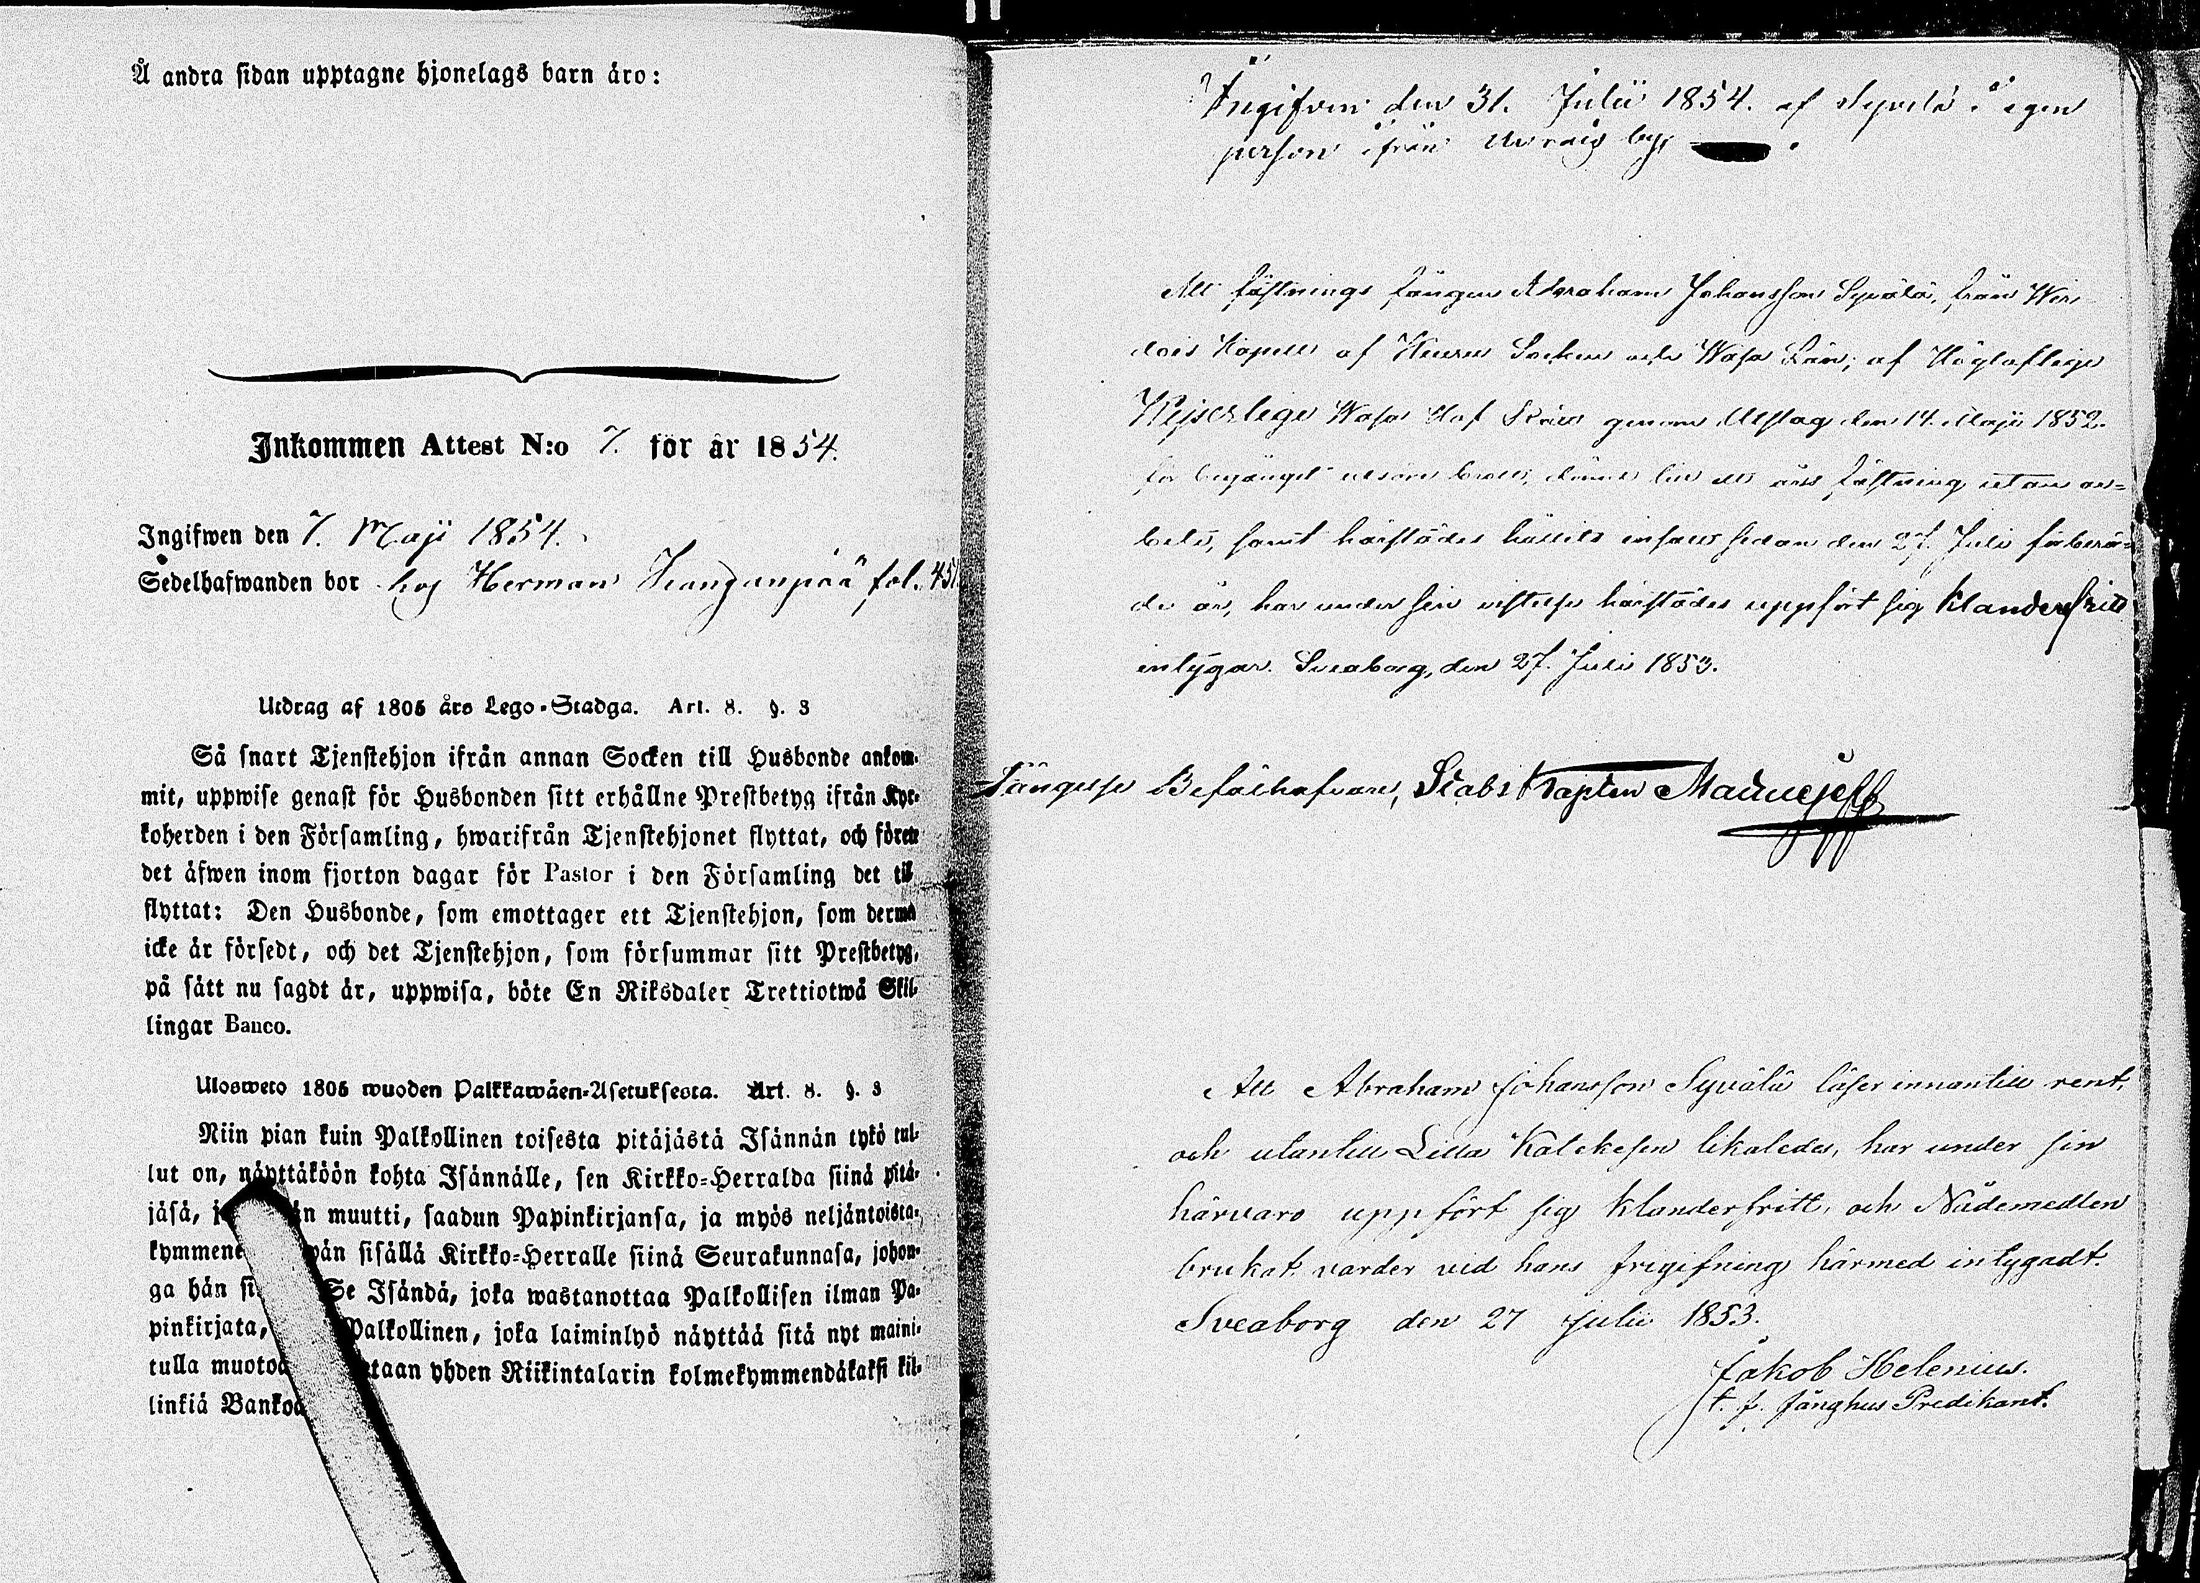 Å andra sidan upptagne hjonelags barn äro:
Inkommen Attest N:o 7. för år 1854.
Ingifwen den 7. Maji 1854.
Sedelhafwanden bor hos Herman Kanganpää fol. 451
Utdrag af 1805 års Lego-Stadga. Art. 8. §. 3
Så snart Tjenstehjon ifrån annan Socken till Husbonde ankom-
mit, uppwise genast för Husbonden sitt erhållne Prestbetyg ifrån Kyr-
koherden i den Församling, hwarifrån Tjenstehjonet flyttat, och förete
det äfwen inom fjorton dagar för Pastor i den Församling det till
flyttat: Den Husbonde, som emottager ett Tjenstehjon, som dermed
icke är försedt, och det Tjenstehjon, som försummar sitt Prestbetyg,
på sätt nu sagdt är, uppwisa, böte En Riksdaler Trettiotwå Skil-
lingar Banco.
Ulosweto 1805 wuoden Palkkawäen-Asetuksesta. Art. 8. §. 3
Niin pian kuin Palkollinen toisesta pitäjästä Isännän tykö tul-
lut on, näyttäköön kohta Isännälle, sen Kirkko-Herralda siinä pitä-
jäsä, muutti, saadun Papinkirjansa, ja myös neljäntoista-
kymmene sisällä Kirkko-Herralle siinä Seurakunnasa, johon-
ga hän Se Isändä, joka wastanottaa Palkollisen ilman Pa-
pinkirjata, Palkollinen, joka laiminlyö näyttää sitä nyt maini-
tulla yhden Riikintalarin kolmekymmendäkaksi kil-
linkiä
Ingifven den 31. Julii 1854. af Syvälä i egen
person ifrån by.
Att fästnings fången Abraham Johansson Syvälä, från Wir-
dois Kapell af Socken och Wasa Län, af Högloflige
Kejserlige Wasa Hof Rätt genom Utslag den 14. Maji 1852.
för begånget brott, dömd till ett års fästning utan ar-
bete, samt härstädes hållits insatt sedan den 27. Juli förberö-
de år, har under sin vistelse härstädes uppfört sig klanderfritt
intygar. Sveaborg, den 27. Juli 1853.
Fångelse Befälhafvare, Stabs Kapten
Att Abraham Johansson Syvälä läser innantill rent,
och utantill Lilla Katekesen likaledes, har under sin
härvaro uppfört sig klanderfritt, och Nådemedlen
brukat. varder vid hans frigifning härmed intygadt.
Sveaborg den 27 Julii 1853.
Jakob Helenius.
t. f. fånghus Predikant.